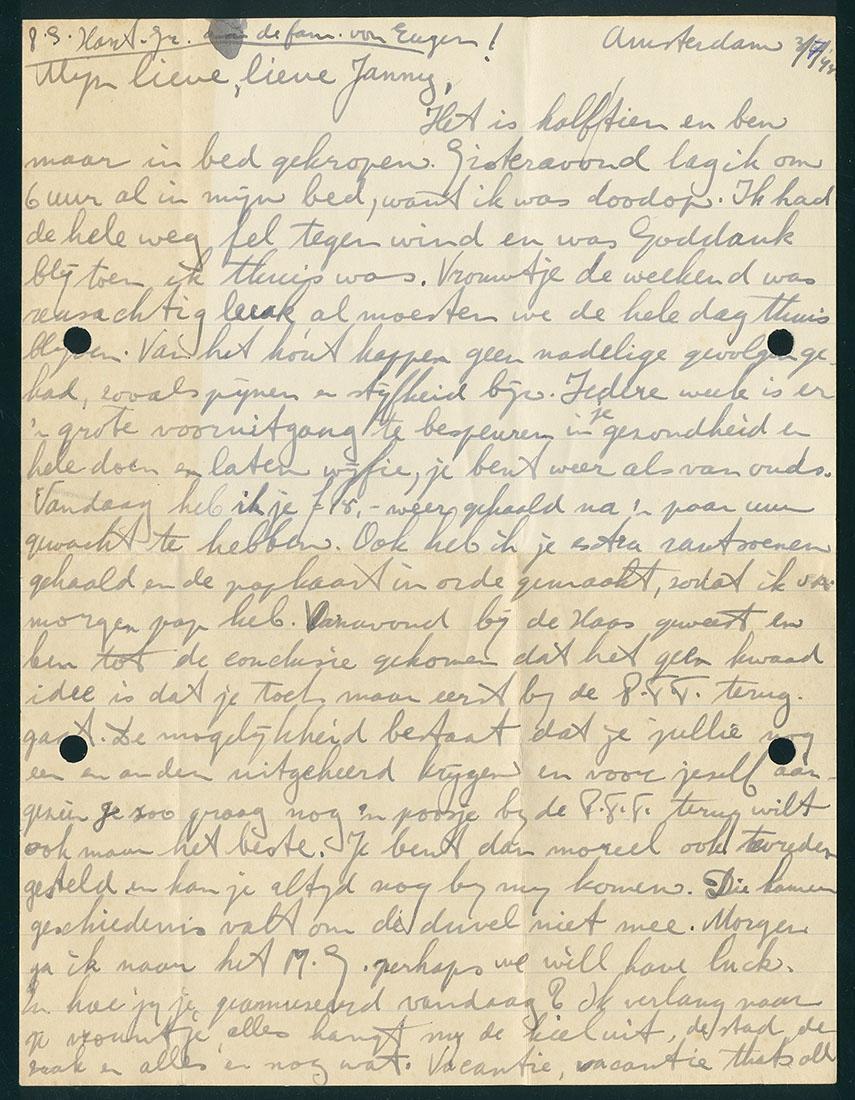 P.S. Hart. Gr. aan de fam. von Eugen!
Amsterdam
Mijn lieve, lieve Janny,
Het is half tien en ben
maar in bed gekropen. Gisteravond lag ik om
6 uur al in mijn bed, want ik was doodop. Ik had
de hele weg fel tegen wind en was Goddank
blij toen ik thuis was. Vrouwtje de weekend was
reusachtig leuk al moesten we de hele dag thuis
blijven. Van het hout happen geen nadelige gevolgen ge-
had, zooals pijnen en stijfheid bijv. Iedere week is er
'n grote vooruitgang te bespeuren in je gezondheid en
hele doen en laten wijfie, je bent weer als van ouds.
Vandaag heb ik je weer gehaald na 'n paar uur
gewacht te hebben. Ook heb ik je extra rantsoenen
gehaald en de papkaart in orde gemaakt, zodat ik
morgen pap heb. Vanavond bij de Haas geweest en
ben tot de conclusie gekomen dat het geen kwaad
idee is dat je toch maar eerst bij de P.T.T. terug-
gaat. De mogelijkheid bestaat dat je jullie nog
een en ander uitgekeerd krijgen en voor jeself aan-
gezien je zoo graag nog 'n poosje bij de P.T.T. terug wilt
ook maar het beste. Je bent dan moreel ook tevreden
gesteld en kan je altijd nog bij mij komen. Die kamer
geschiedenis valt om de duvel niet mee. Morgen
ga ik naar het M.G. perhaps we will have luck.
En hoe jij je geamuseerd vandaag? Ik verlang naar
je vrouwtje, alles hangt mij de keel uit, de stad, de
zaak en alles en nog wat. Vacantie, vacantie thats all